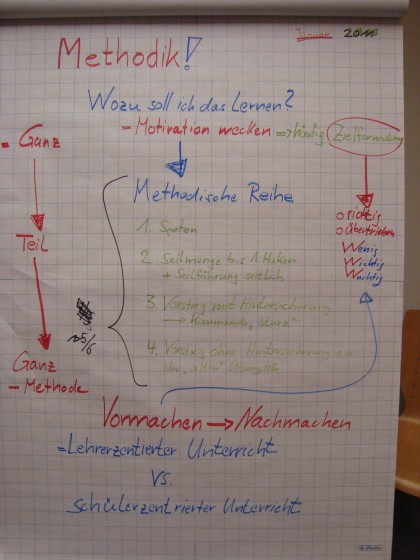 Januar
Methodik!
Wozu soll ich das Lernen?
= Motivation wecken => häufig Zielformulierung
= Ganz
Teil
Ganz
- Methode
Methodische Reihe
1. Spoten
2. Seilmenge bis 1. Haken
+ Seilführung seitlich
3. Vorstieg mit Hintersicherung
→ Kommando „Sturz"
4. Vorstieg ohne Hintersicherung an
übertrieben
Wenig
Wichtig
Wuchtig
Vormachen → Nachmachen
= Lehrerzentierter Unterricht
vs.
Schülerzentrierter Unterricht